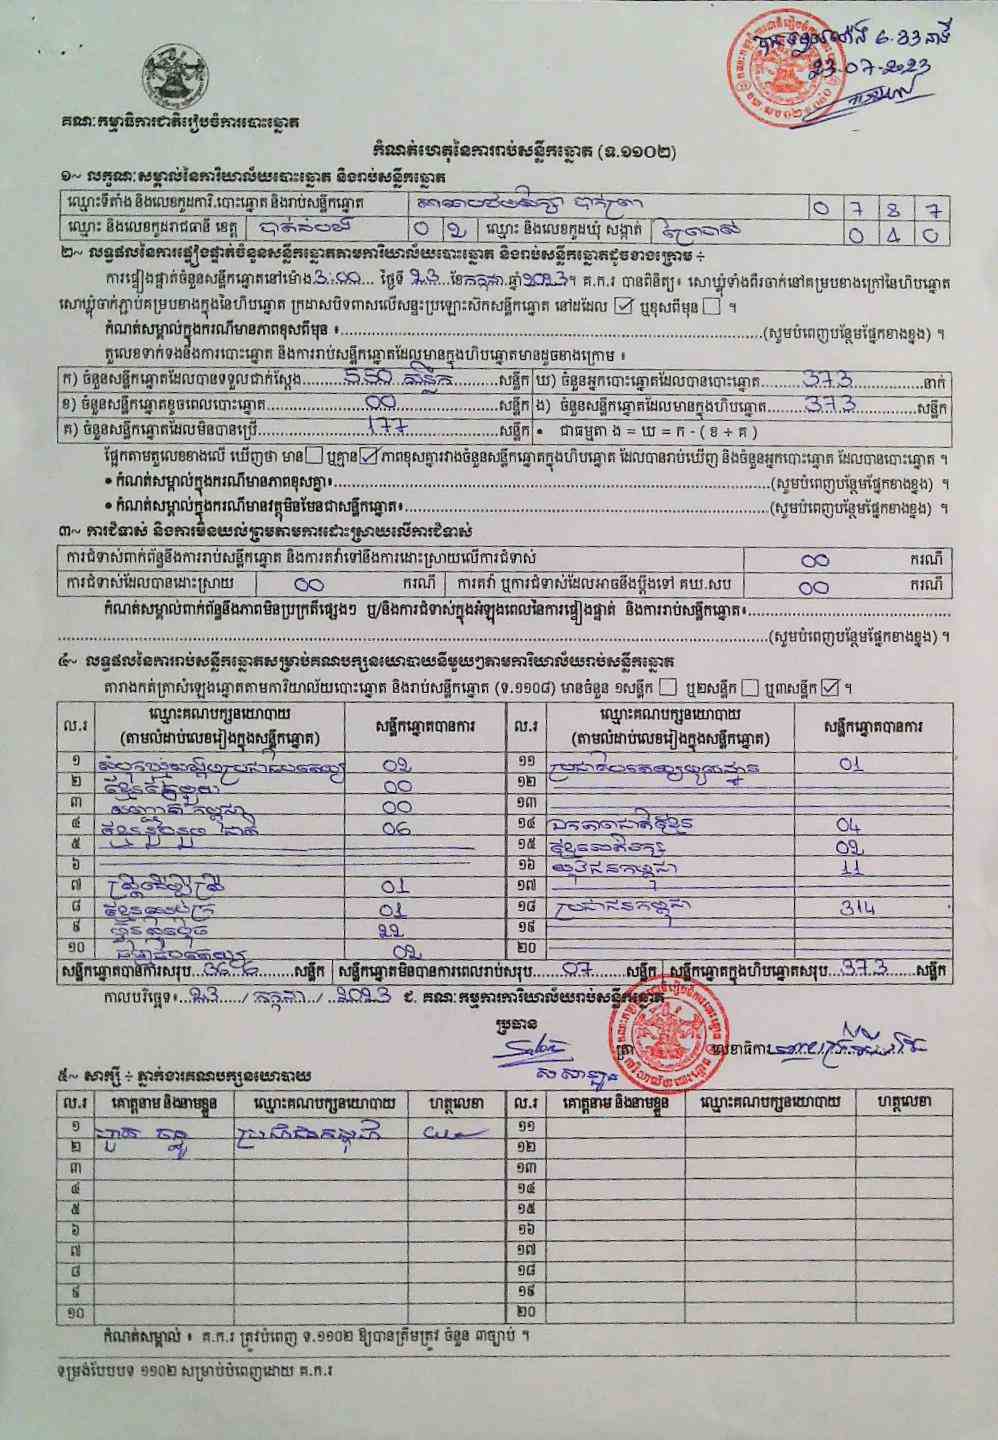 6.33 នាទី
23-07-2023
គណៈកម្មាធិការជាតិរៀបចំការបោះឆ្នោត
កំណត់ហេតុនៃការរាប់សន្លឹកឆ្នោត (ទ.១១០២)
១~ លក្ខណៈសម្គាល់នៃការិយាល័យបោះឆ្នោត និងរាប់សន្លឹកឆ្នោត
ឈ្មោះទីតាំង និងលេខកូដការិ.បោះឆ្នោត និងរាប់សន្លឹកឆ្នោត 0 7 8 7
ឈ្មោះ និងលេខកូដរាជធានី ខេត្ត បាត់ដំបង 0 2 ឈ្មោះ និងលេខកូដឃុំ សង្កាត់ 0 4 0
២~ លទ្ធផលនៃការផ្ទៀងផ្ទាត់ចំនួនសន្លឹកឆ្នោតតាមការិយាល័យបោះឆ្នោត និងរាប់សន្លឹកឆ្នោតដូចខាងក្រោម ÷
ការផ្ទៀងផ្ទាត់ចំនួនសន្លឹកឆ្នោតនៅម៉ោង 3:00 ថ្ងៃទី 23 ខែ កក្កដា ឆ្នាំ 2023។ គ.ក.រ បានពិនិត្យ៖ សោឃ្លុំទាំងពីរចាក់នៅគម្របខាងក្រៅនៃហិបឆ្នោត
សោឃ្លុំចាក់ភ្ជាប់គម្របខាងក្នុងនៃហិបឆ្នោត ក្រដាសបិទពាសលើសន្ទះប្រឡោះសិកសន្លឹកឆ្នោត នៅដដែល ☑ ឬខុសពីមុន ☐ ។
កំណត់សម្គាល់ក្នុងករណីមានភាពខុសពីមុន ៖ (សូមបំពេញបន្ថែមផ្នែកខាងខ្នង) ។
តួលេខទាក់ទងនឹងការបោះឆ្នោត និងការរាប់សន្លឹកឆ្នោតដែលមានក្នុងហិបឆ្នោតមានដូចខាងក្រោម ៖
ក) ចំនួនសន្លឹកឆ្នោតដែលបានទទួលជាក់ស្តែង 550 សន្លឹក សន្លឹក ឃ) ចំនួនអ្នកបោះឆ្នោតដែលបានបោះឆ្នោត 373 នាក់
ខ) ចំនួនសន្លឹកឆ្នោតខូចពេលបោះឆ្នោត 00 សន្លឹក ង) ចំនួនសន្លឹកឆ្នោតដែលមានក្នុងហិបឆ្នោត 373 សន្លឹក
គ) ចំនួនសន្លឹកឆ្នោតដែលមិនបានប្រើ 177 សន្លឹក • ជាធម្មតា ង = ឃ = ក - ( ខ ÷ គ )
ផ្អែកតាមតួលេខខាងលើ ឃើញថា មាន ☐ ឬគ្មាន ☑ ភាពខុសគ្នារវាងចំនួនសន្លឹកឆ្នោតក្នុងហិបឆ្នោត ដែលបានរាប់ឃើញ និងចំនួនអ្នកបោះឆ្នោត ដែលបានបោះឆ្នោត ។
• កំណត់សម្គាល់ក្នុងករណីមានភាពខុសគ្នា៖ (សូមបំពេញបន្ថែមផ្នែកខាងខ្នង) ។
• កំណត់សម្គាល់ក្នុងករណីមានវត្ថុមិនមែនជាសន្លឹកឆ្នោត៖ (សូមបំពេញបន្ថែមផ្នែកខាងខ្នង) ។
៣~ ការជំទាស់ និងការមិនយល់ព្រមតាមការដោះស្រាយលើការជំទាស់
ការជំទាស់ពាក់ព័ន្ធនឹងការរាប់សន្លឹកឆ្នោត និងការតវ៉ាទៅនឹងការដោះស្រាយលើការជំទាស់ 00 ករណី
ការជំទាស់ដែលបានដោះស្រាយ 00 ករណី ការតវ៉ា ឬការជំទាស់ដែលអាចនឹងប្តឹងទៅ គឃ.សប 00 ករណី
កំណត់សម្គាល់ពាក់ព័ន្ធនឹងភាពមិនប្រក្រតីផ្សេងៗ ឬ/និងការជំទាស់ក្នុងអំឡុងពេលនៃការផ្ទៀងផ្ទាត់ និងការរាប់សន្លឹកឆ្នោត៖
(សូមបំពេញបន្ថែមផ្នែកខាងខ្នង) ។
៤~ លទ្ធផលនៃការរាប់សន្លឹកឆ្នោតសម្រាប់គណបក្សនយោបាយនីមួយៗតាមការិយាល័យរាប់សន្លឹកឆ្នោត
តារាងកត់ត្រាសំឡេងឆ្នោតតាមការិយាល័យបោះឆ្នោត និងរាប់សន្លឹកឆ្នោត (ទ.១១០៨) មានចំនួន ១សន្លឹក ☐ ឬ២សន្លឹក ☐ ឬ៣សន្លឹក ☑ ។
ល.រ ឈ្មោះគណបក្សនយោបាយ (តាមលំដាប់លេខរៀងក្នុងសន្លឹកឆ្នោត) សន្លឹកឆ្នោតបានការ ល.រ ឈ្មោះគណបក្សនយោបាយ (តាមលំដាប់លេខរៀងក្នុងសន្លឹកឆ្នោត) សន្លឹកឆ្នោតបានការ
១ 02 ១១ 01
២ 00 ១២
៣ 00 ១៣
៤ 06 ១៤ 04
៥ ១៥ 02
៦ ១៦ 11
៧ ស្ត្រីដើម្បីស្ត្រី 01 ១៧
៨ 01 ១៨ ប្រជាជនកម្ពុជា 314
៩ ហ៊្វុនស៊ិនប៉ិច 22 ១៩
១០ 02 ២០
សន្លឹកឆ្នោតបានការសរុប 366 សន្លឹក សន្លឹកឆ្នោតមិនបានការពេលរាប់សរុប 07 សន្លឹក សន្លឹកឆ្នោតក្នុងហិបឆ្នោតសរុប 373 សន្លឹក
កាលបរិច្ឆេទ៖ 23 / កក្កដា / 2023 ជ. គណៈកម្មការការិយាល័យរាប់សន្លឹកឆ្នោត
ប្រធាន
ត្រា លេខាធិការ
៥~ សាក្សី ÷ ភ្នាក់ងារគណបក្សនយោបាយ
ល.រ គោត្តនាម និងនាមខ្លួន ឈ្មោះគណបក្សនយោបាយ ហត្ថលេខា ល.រ គោត្តនាម និងនាមខ្លួន ឈ្មោះគណបក្សនយោបាយ ហត្ថលេខា
១ ប្រជាជនកម្ពុជា ១១
២ ១២
៣ ១៣
៤ ១៤
៥ ១៥
៦ ១៦
៧ ១៧
៨ ១៨
៩ ១៩
១០ ២០
កំណត់សម្គាល់ ៖ គ.ក.រ ត្រូវបំពេញ ទ.១១០២ ឱ្យបានត្រឹមត្រូវ ចំនួន ៣ច្បាប់ ។
ទម្រង់បែបបទ ១១០២ សម្រាប់បំពេញដោយ គ.ក.រ